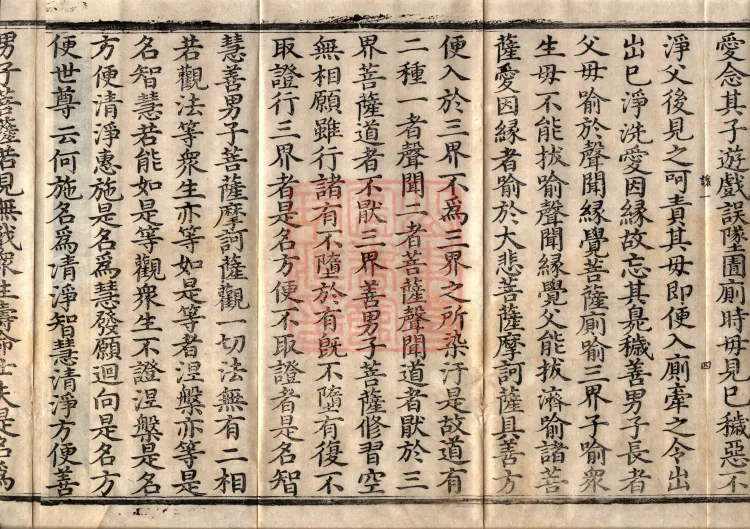 愛念其子遊戲誤墮圊廁時母見已穢惡不
淨父後見之呵責其母即便入廁牽之令出
出已淨洗愛因緣故忘其臭穢善男子長者
父母喻於聲聞緣覺菩薩廁喻三界子喻衆
生母不能拔喻聲聞緣覺父能拔濟喻諸菩
薩愛因緣者喻於大悲菩薩摩訶薩具善方
便入於三界不爲三界之所染汙是故道有
二種一者聲聞二者菩薩聲聞道者厭於三
界菩薩道者不厭三界善男子菩薩修習空
無相願雖行諸有不墮於有旣不墮有復不
取證行三界者是名方便不取證者是名智
慧善男子菩薩摩訶薩觀一切法無有二相
若觀法等衆生亦等如是等者涅槃亦等是
名智慧若能如是等觀衆生不證涅槃是名
方便清淨惠施是名爲慧發願迴向是名方
便世尊云何施名爲清淨智慧清淨方便善
男子菩薩若見無我衆生壽命士夫是名爲
四